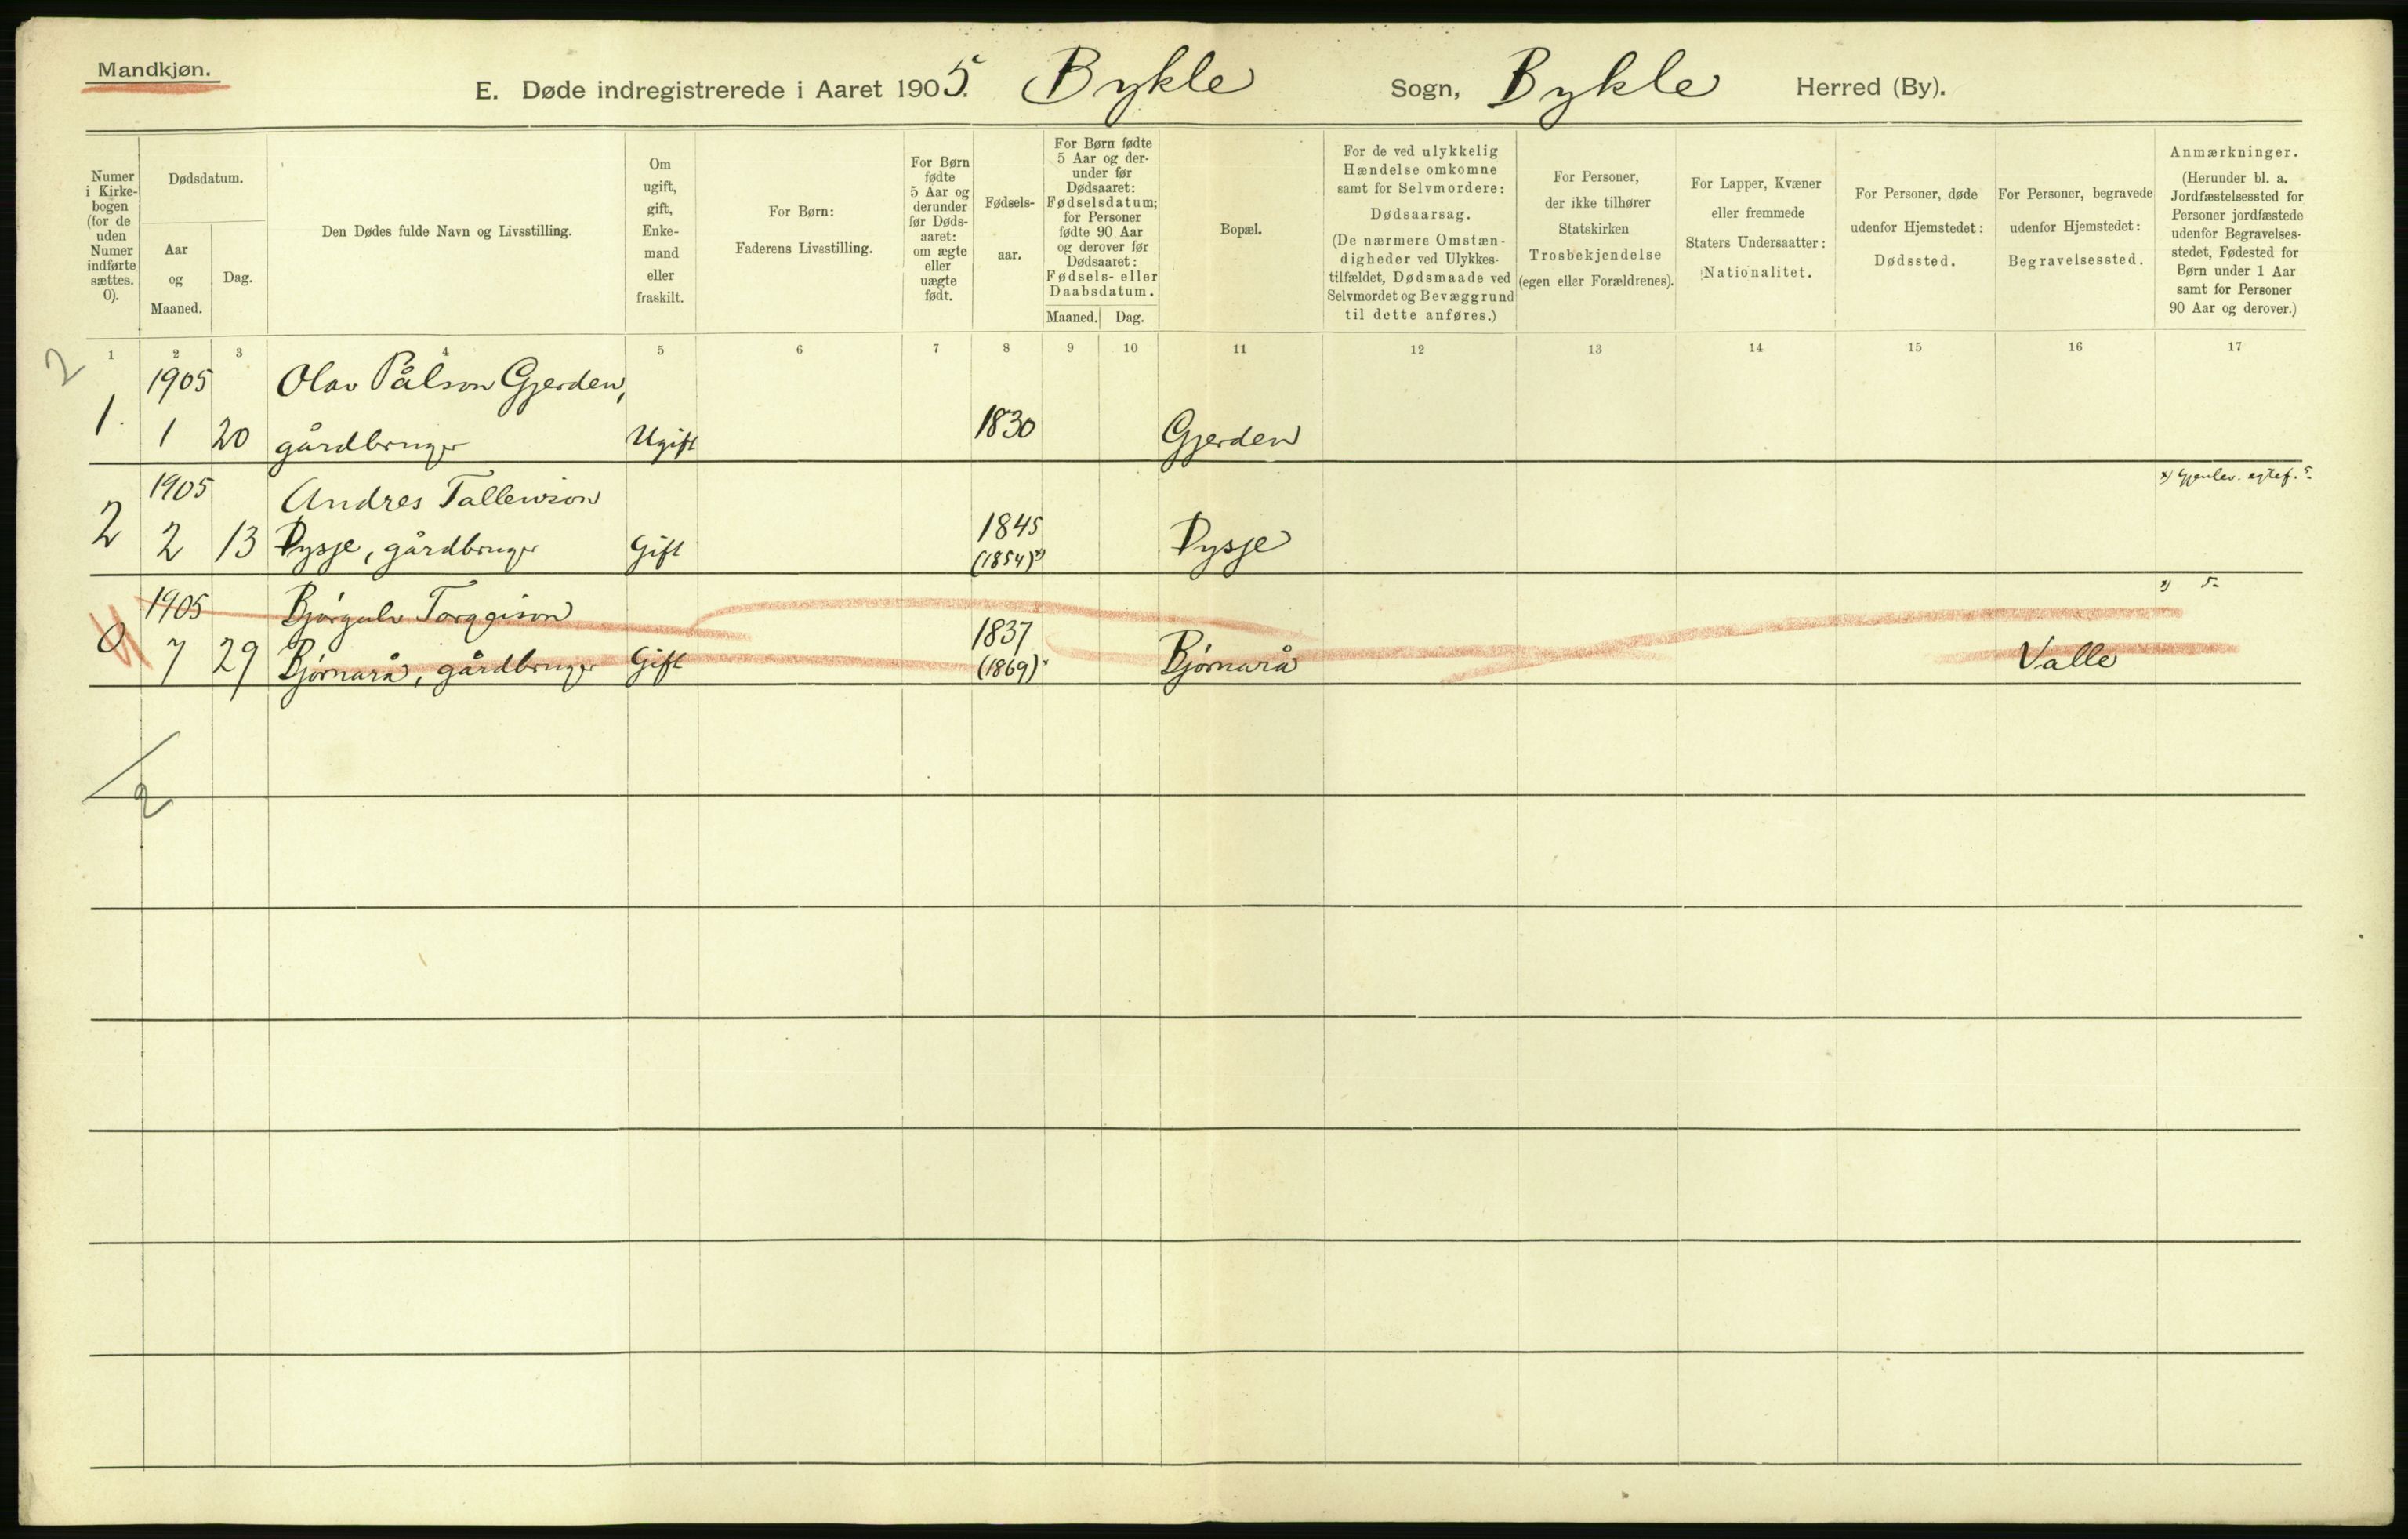 Mandkjøn.
E. Døde indregistrerede i Aaret 1905. Bykle Sogn, Bykle Herred (By).
Numer i Kirke-bogen (for de uden Numer indførte sættes. 0).
Dødsdatum.
Aar og Maaned.
Dag.
Den Dødes fulde Navn og Livsstilling.
Om ugift, gift, Enke-mand eller fraskilt.
For Børn: Faderens Livsstilling.
For Børn fødte 5 Aar og derunder før Døds-aaret: om ægte eller uægte født.
Fødsels-aar.
For Børn fødte 5 Aar og der-under før Dødsaaret: Fødselsdatum; for Personer fødte 90 Aar og derover før Dødsaaret: Fødsels- eller Daabsdatum.
Maaned. Dag.
Bopæl.
For de ved ulykkelig Hændelse omkomne samt for Selvmordere: Dødsaarsag. (De nærmere Omstæn-digheder ved Ulykkes-tilfældet, Dødsmaade ved Selvmordet og Bevæggrund til dette anføres.)
For Personer, der ikke tilhører Statskirken Trosbekjendelse (egen eller Forældrenes).
For Lapper, Kvæner eller fremmede Staters Undersaatter: Nationalitet.
For Personer, døde udenfor Hjemstedet: Dødssted.
For Personer, begravede udenfor Hjemstedet: Begravelsessted.
Anmærkninger. (Herunder bl. a. Jordfæstelsessted for Personer jordfæstede udenfor Begravelses-stedet, Fødested for Børn under 1 Aar samt for Personer 90 Aar og derover.)
1 2 3 4 5 6 7 8 9 10 11 12 13 14 15 16 17
2
1905 Olav Pålson Gjerden,
1. 1 20 gårdbruger Ugift 1830 Gjerden
1905 Andres Tallewson x) Gjenlev. egtef. f.
2 2 13 Dysje, gårdbruger Gift 1845 (1854)x) Dysje
1905 Bjørgulv Torggison
0 7 29 Bjørnarå, gårdbruger Gift 1837 (1869) Bjørnarå Valle
2